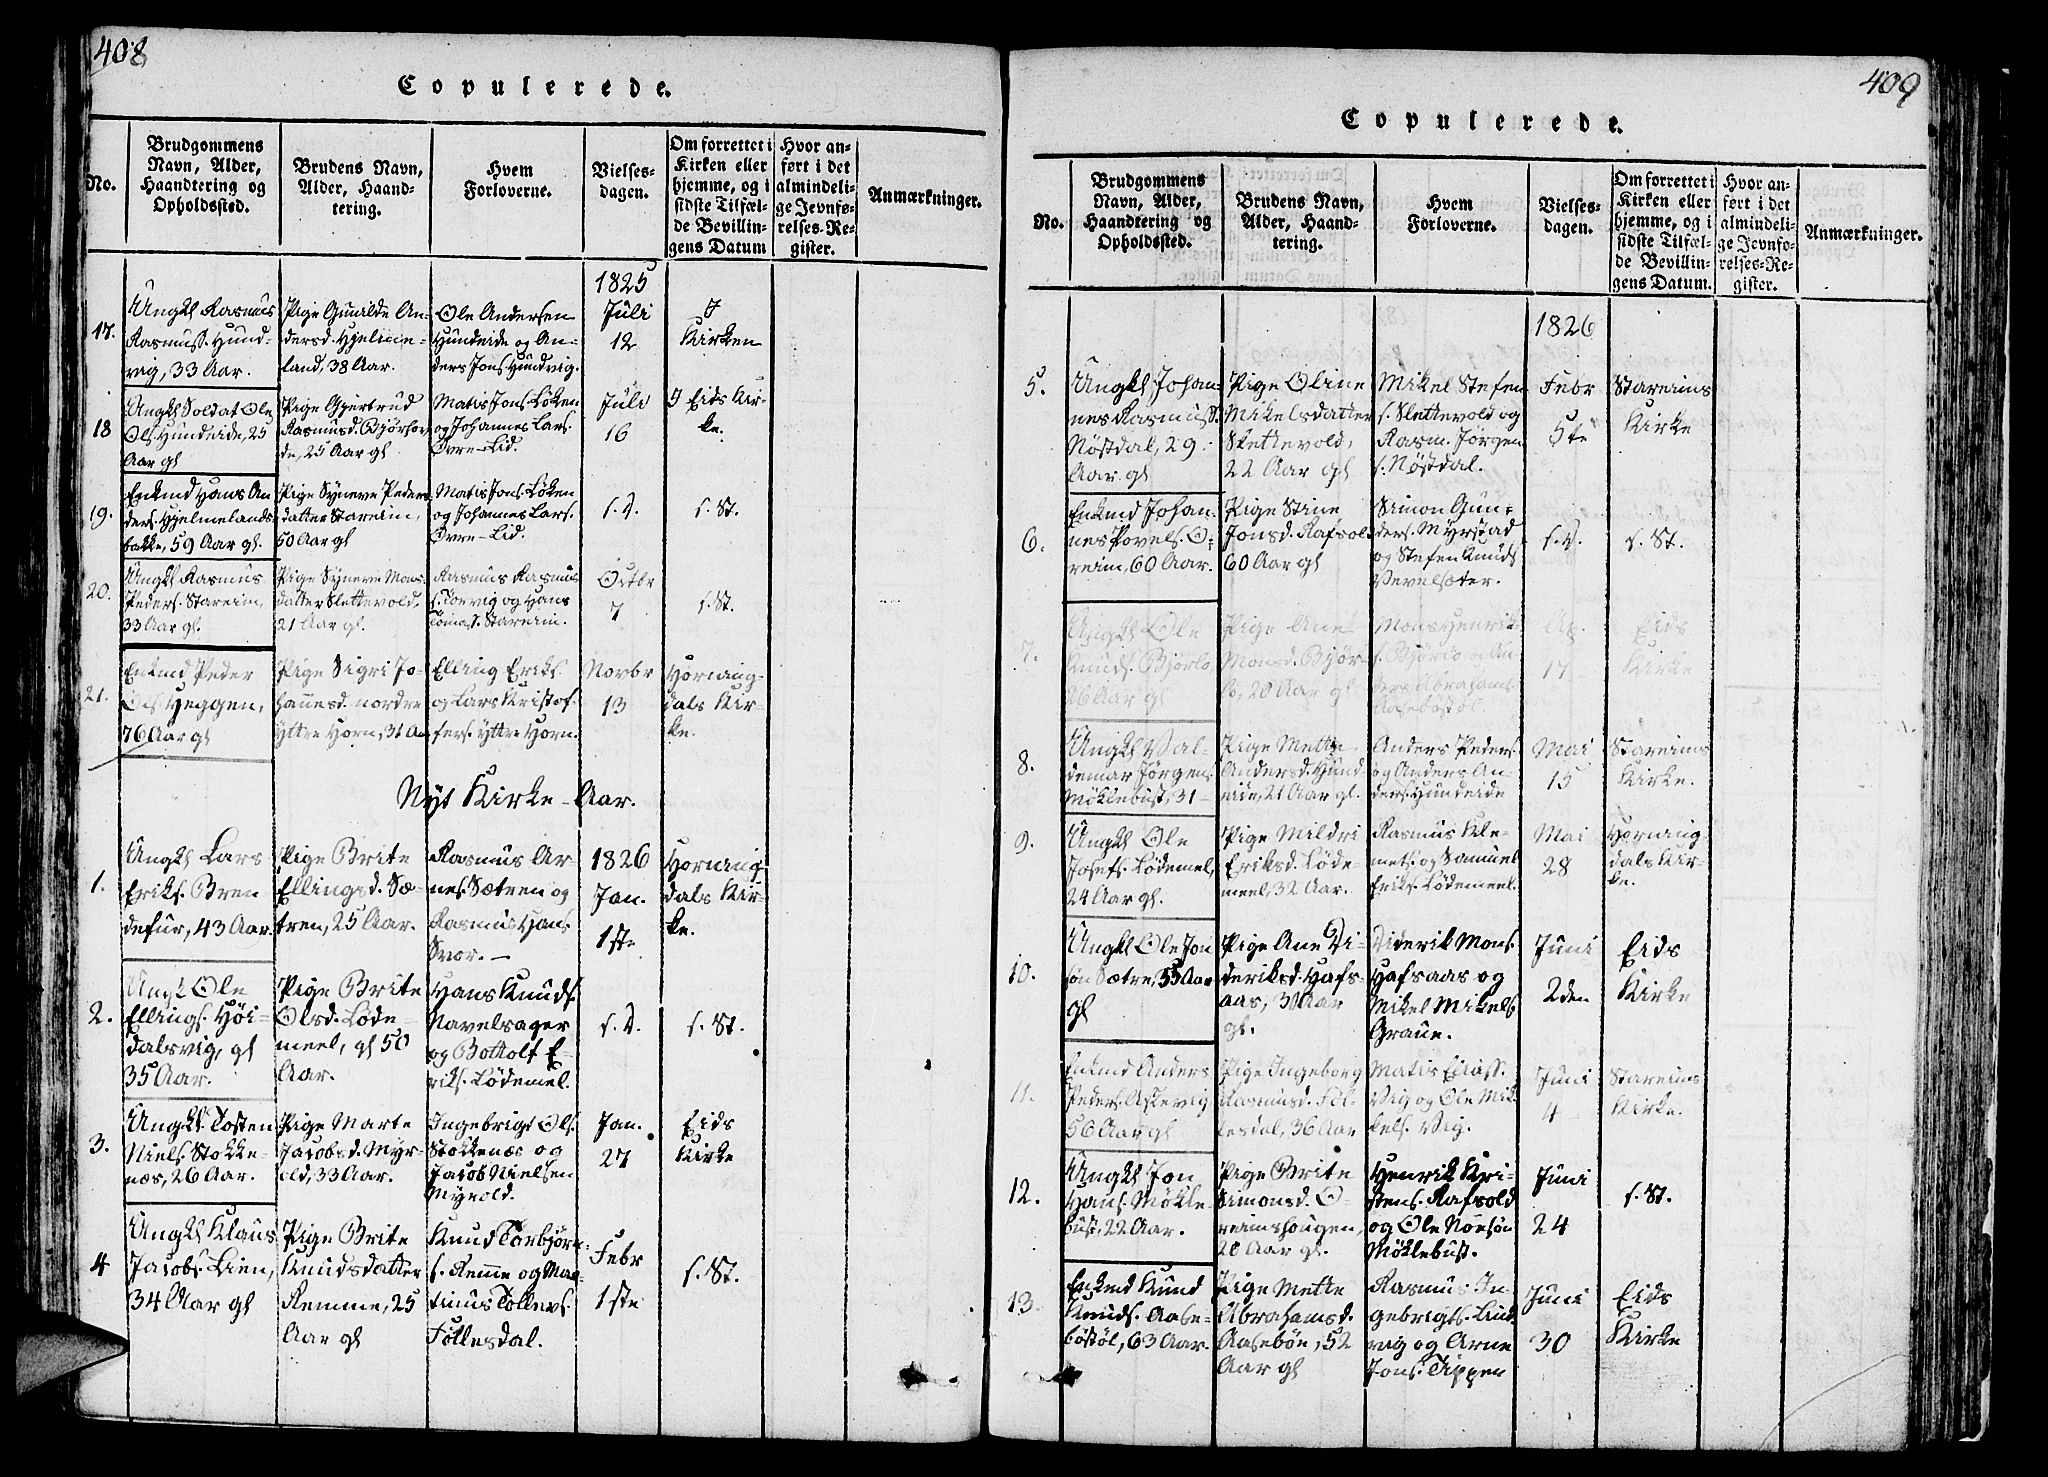 408
Copulerede.
No.
Brudgommens
Navn, Alder,
Haandtering og
Opholdssted.
Brudens Navn,
Alder, Haand-
tering.
Hvem
Forloverne.
Vielses-
dagen.
Om forrettet i
Kirken eller
hjemme, og i
sidste Tilfæl-
de Bevillin-
gens Datum
Hvor an-
ført i det
almindeli-
ge Jevnfø-
relses-Re-
gister.
Anmærkninger.
1825
17.
Ungkl Rasmus
Rasmuss. Hund-
vig, 33 Aar.
Pige Gunilde An-
dersd. Hjelme-
land, 38 Aar.
Ole Andersen
Hundeide og An-
ders Jons. Hundvig.
Juli
12
I
Kirken
18
Ungkl Soldat Ole
Ols. Hundeide, 25
Aar gl
Pige Gjertrud
Rasmusd. Bjørhov-
de, 25 Aar gl
Matis Jons. Løken
og Johannes Lars.
Øvre-Lid.
Juli
16
I Eids Kir-
ke.
19.
Enkmd Hans An
ders. Hjelmelands-
bakke, 59 Aar gl.
Pige Syneve Peders
datter Stareim,
50 Aar gl
Matis Jons. Løken
og Johannes Lars.
Øvre-Lid.
s. D.
s. St.
20.
Ungkl Rasmus
Peders. Stareim,
33 Aar gl.
Pige Syneve Mons
datter Slettevold,
21 Aar gl.
Rasmus Rasmus
s. Torvig og Hans
Tomass. Stareim.
Octbr
7
s. St.
21.
Enkmd Peder
Ols. Heggen,
76 Aar gl
Pige Sigri Jo-
hannesd. nordre
Yttre Horn, 31 Aar
Elling Eriks.
og Lars Kristof-
fers. yttre Horn.
Novbr
13
Horning-
dals Kir-
ke.
Nyt Kirke-Aar.
1.
Ungkl Lars
Eriks. Bren
defur, 43 Aar.
Pige Brite
Ellingsd. Sæ-
tren, 25 Aar.
Rasmus Ar-
nes. Sætren og
Rasmus Hans
Svor. —
1826
Jan.
1ste
Horning
dals Kir-
ke.
2.
Ungk. Ole
Ellings. Høi-
dalsvig, gl
35 Aar.
Pige Brite
Olsd. Løde-
meel, gl 50
Aar.
Hans Knuds.
Navelsager
og Bottolf E-
riks. Lødemel.
s. D.
s. St.
3.
Ungkl. Tosten
Niels. Stokke-
næs, 26 Aar.
Pige Marte
Jacobsd. Myr-
old, 33 Aar.
Ingebrigt Ols.
Stokkenæs og
Jacob Nielsen
Myrold.
Jan.
27
Eids
Kirke
4
Ungkl Klaus
Jacobs. Lien,
34 Aar gl
Pige Brite
Knudsdatter
Remme, 25
Aar gl
Knud Torbjørn-
s. Remme og Mar-
tinus Tollevs.
Føllesdal.
Febr
1ste
s. St.
409
Copulerede.
No.
Brudgommens
Navn, Alder,
Haandtering og
Opholdssted.
Brudens Navn,
Alder, Haand-
tering.
Hvem
Forloverne.
Vielses-
dagen.
Om forrettet i
Kirken eller
hjemme, og i
sidste Tilfæl-
de Bevillin-
gens Datum.
Hvor an-
ført i det
almindeli-
ge Jevnfø-
relses-Re-
gister.
Anmærkninger.
1826
5.
Ungkl Johan-
nes Rasmuss.
Nøstdal, 29
Aar gl
Pige Oline
Mikelsdatter
Slettevold,
22 Aar gl
Mikel Stefen
s. Slettevold og
Rasm. Jørgen
s. Nøstdal.
Febr
5te
Stareims
Kirke
6.
Enkmd Johan-
nes Povels. O-
reim, 60 Aar.
Pige Stine
Jonsd. Rafsold
60 Aar gl
Simon Gun-
ders. Myrstad
og Stefen Knuds
Vevelsæter.
s. D.
s. St.
7.
Ungkl Ole
Knuds. Bjørlo
26 Aar gl
Pige Ane
Monsd. Bjør-
lo, 20 Aar gl
Mons Henrik
s. Bjørlo og An-
ders Abrahams.
Aasebøstøl.
Ap.
17
Eids
Kirke
8.
Ungkl Val-
demar Jørgens.
Møklebust, 31 —
Pige Mette
Andersd. Hund-
eide, 21 Aar gl.
Anders Peders.
og Anders An-
ders. Hundeide
Mai
15
Stareims
Kirke.
9.
Ungkl Ole
Josefs. Lødemel,
24 Aar gl.
Pige Mildri
Eriksd. Løde-
meel, 32 Aar.
Rasmus Kle-
mets. og Samuel
Eriks. Lødemeel.
Mai
28
Horning-
dals Kir-
ke.
10.
Ungkl Ole Jon
søn Sætre, 35 Aar
gl
Pige Ane Di-
deriksd. Hafs-
aas, 30 Aar
gl.
Diderik Mons.
Hafsaas og
Mikel Mikels.
Graue.
Juni
2den
Eids
Kirke
11.
Enkmd Anders
Peders. Askevig
56 Aar gl
Pige Ingeborg
Rasmusd. Føl-
lesdal, 36 Aar
Matis Eliass.
Vig og Ole Mik-
kels. Vig.
Juni
4
Stareims
Kirke.
12.
Ungkl Jon
Hans. Møkle-
bust, 22 Aar.
Pige Brite
Simonsd. O-
reimshougen,
20 Aar gl.
Henrik Kri-
stens. Rafsold
og Ole Monsøn
Møklebust.
Juni
24
s. St.
13.
Enkmd Knud
Knuds. Aase-
bøstøl, 63 Aar.
Pige Mette
Abrahamsd.
Aasebøe, 52
Aar gl
Rasmus In-
gebrigts. Lind
vig og Arne
Jons. Tippen
Juni
30
Eids
Kirke